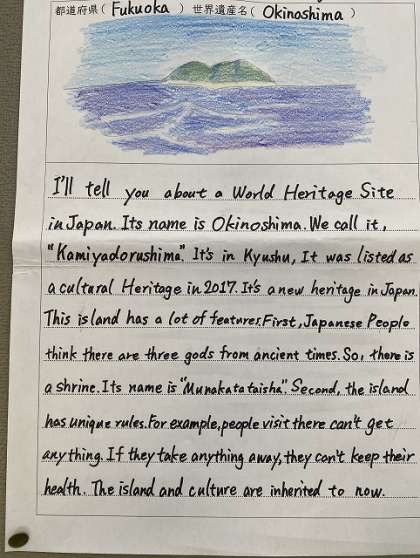 都道府県( Fukuoka ) 世界遺産名( Okinoshima )
I'll tell you about a World Heritage Site
in Japan. Its name is Okinoshima. We call it,
"Kamiyadorushima". It's in Kyushu, It was listed as
a cultural Heritage in 2017. It's a new heritage in Japan.
This island has a lot of features. First, Japanese People
think there are three gods from ancient times. So, there is
a shrine. Its name is "Munakatataisha". Second, the island
has unique rules. For example, people visit there can't get
anything. If they take anything away, they can't keep their
health. The island and culture are inherited to now.